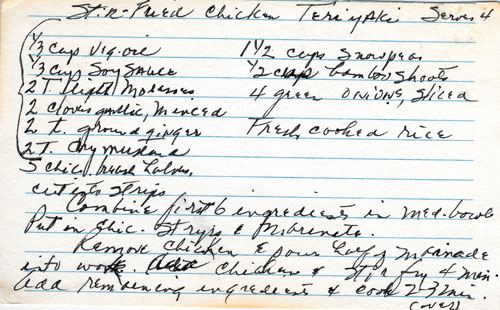 Stir-Fried Chicken Teriyaki Serves 4
1/3 cup veg. oil
1/3 cup Soy Sauce
2 T. light Molasses
2 cloves garlic, Minced
2 t. ground ginger
2 T. dry mustard
5 chic. breast halves,
cut into strips
1 1/2 cups Snowpeas
1/2 cup bamboo shoots
4 green ONIONS, sliced
Fresh cooked rice
Combine first 6 ingredients in med. bowl
Put in chic. Strips & Marinate.
Remove Chicken & pour half of Marinade
into wok. Add Chicken & Stir fry 4 min.
Add remaining ingredients & cook 2-3 min.
(over)